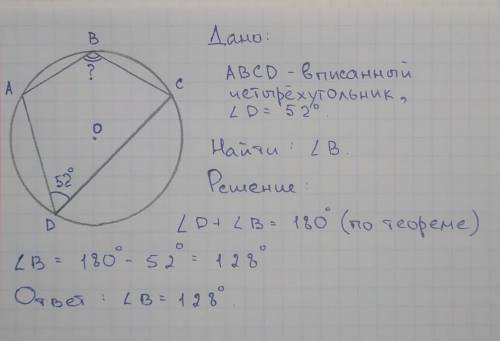 Дано:
B
?
A
C
O
52°
D
ABCD - вписанный
четырёхугольник,
∠D = 52°.
Найти: ∠B.
Решение:
∠D + ∠B = 180° (по теореме)
∠B = 180° - 52° = 128°
Ответ: ∠B = 128°.